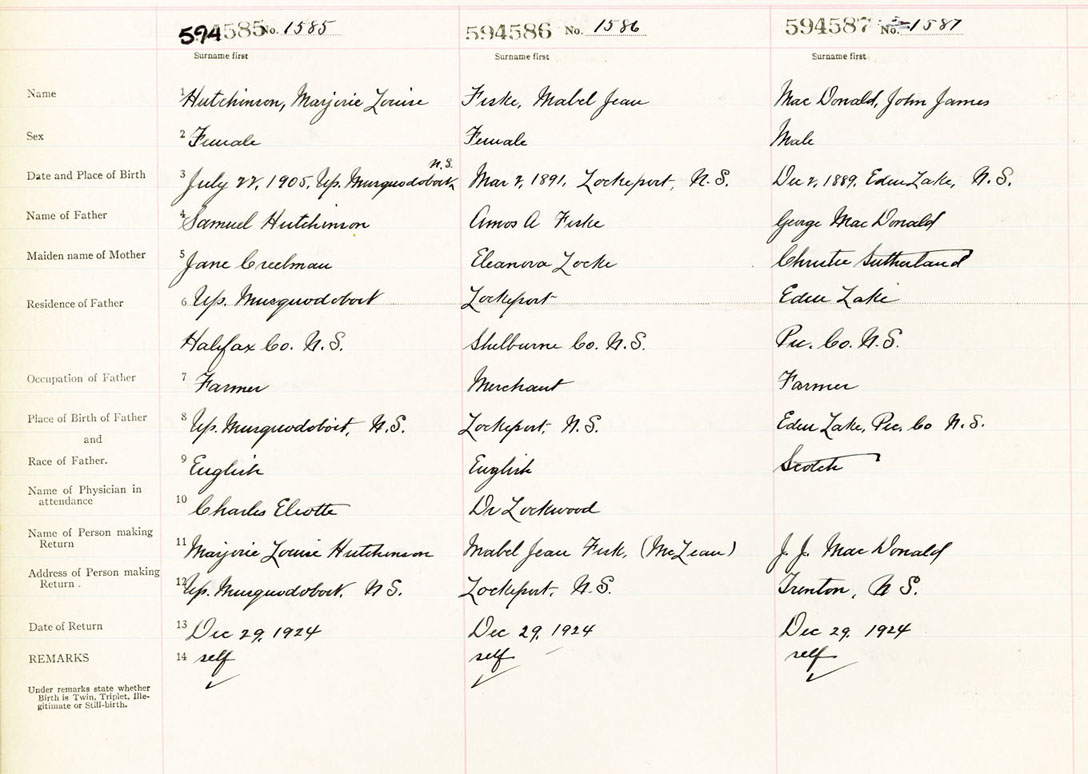 594585 No. 1585 594586 No. 1586 594587 No. 1587
Surname first Surname first Surname first
Name 1 Hutchinson, Marjorie Louise Fiske, Mabel Jean Mac Donald, John James
Sex 2 Female Female Male
N.S.
Date and Place of Birth 3 July 22, 1905, Up. Musquodoboit Mar 2, 1891, Lockeport, N.S. Dec 2, 1889, Eden Lake, N.S.
Name of Father 4 Samuel Hutchinson Amos A Fiske George Mac Donald
Maiden name of Mother 5 Jane Creelman Eleanora Locke Christie Sutherland
Residence of Father 6 Up. Musquodoboit Lockeport Eden Lake
Halifax Co. N.S. Shelburne Co. N.S. Pic. Co. N.S.
Occupation of Father 7 Farmer Merchant Farmer
Place of Birth of Father 8 Up. Musquodoboit, N.S. Lockeport, N.S. Eden Lake, Pic. Co N.S.
and
Race of Father. 9 English English Scotch
Name of Physician in
attendance 10 Charles Eliotte Dr Lockwood
Name of Person making
Return 11 Marjorie Louise Hutchinson Mabel Jean Fisk, (McLean) J. J. Mac Donald
Address of Person making
Return . 12 Up. Musquodoboit, NS. Lockeport, N.S. Trenton, N S.
Date of Return 13 Dec 29, 1924 Dec 29, 1924 Dec 29, 1924
REMARKS 14 self self self
Under remarks state whether
Birth is Twin, Triplet, Ille-
gitimate or Still-birth.